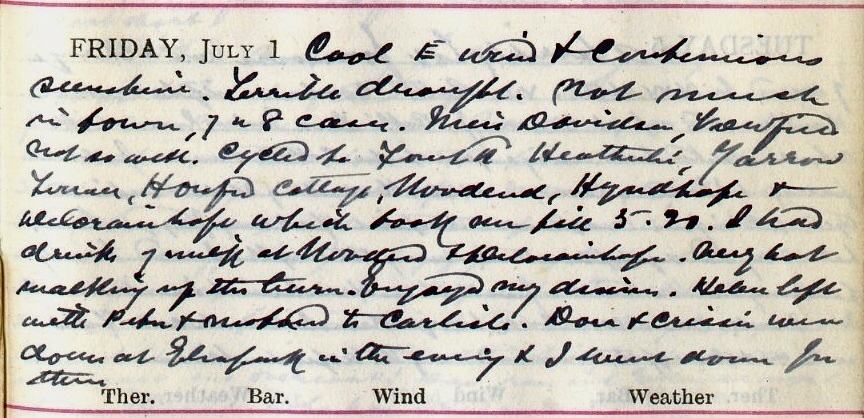 FRIDAY, JULY 1 Cool E wind & continuous
sunshine. Terrible drought. Not much
in town, 7 or 8 cases. Miss Davidson,
not so well. Cycled to Heatherlie, Yarrow
Terrace, cottage, Woodend, Hyndhope &
Delorainhope which took me till 5.20. I had
drinks of milk at Woodend & Delorainhope. Very hot
walking up the burn. Enjoyed my dinner. Helen left
with Peter & husband to Carlisle. Don & Crissie were
down at in the evening & I went down for
them
Ther. Bar. Wind Weather